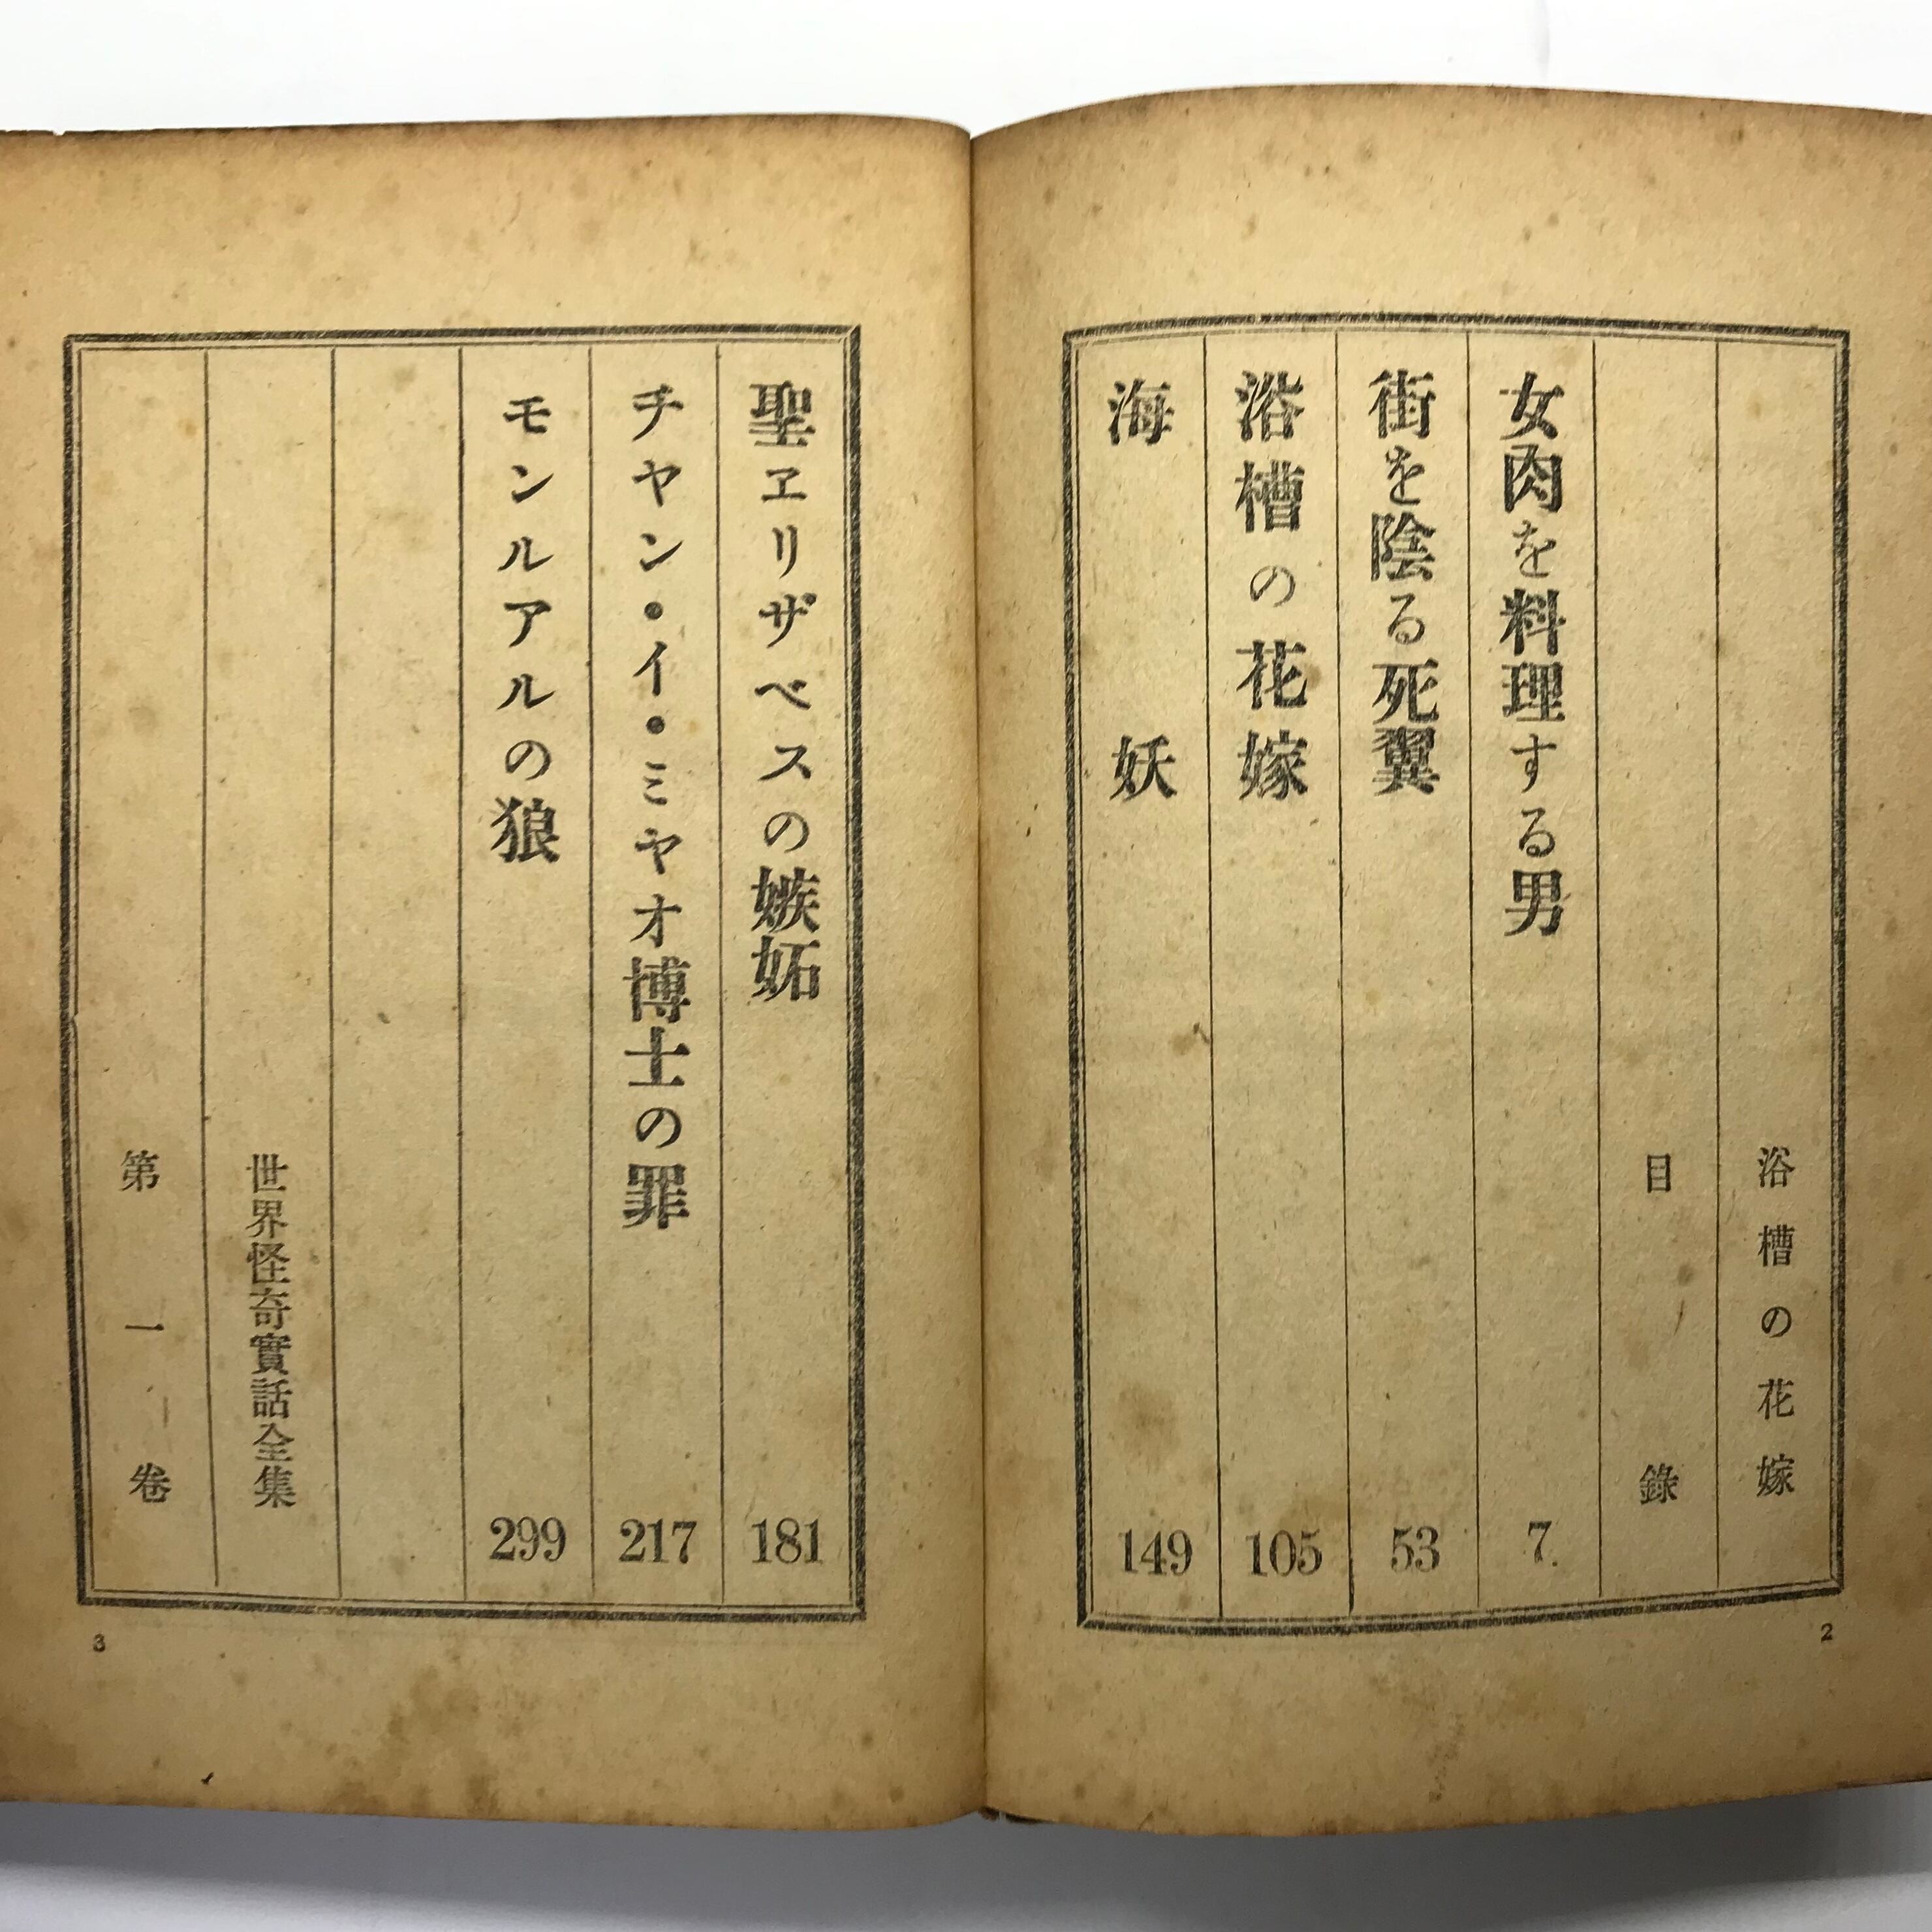 浴槽の花嫁
目錄
女肉を料理する男 7
街を陰る死翼 53
浴槽の花嫁 105
海妖 149
2
聖ヱリザベスの嫉妬 181
チヤン・イ・ミヤオ博士の罪 217
モンルアルの狼 299
世界怪奇實話全集
第一卷
3